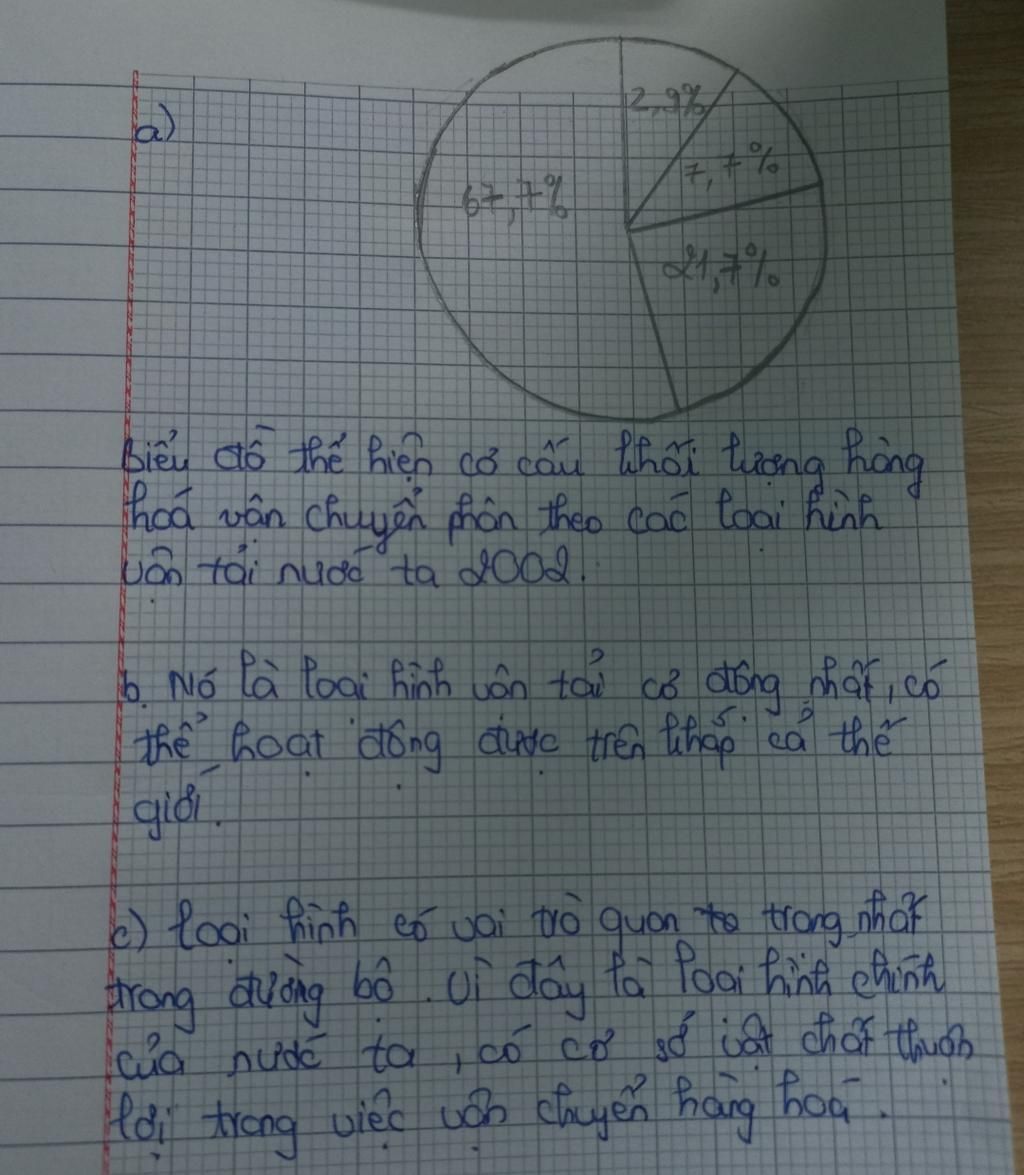 a)
2,9%
7,7%
67,7%
21,7%
Biểu đồ thể hiện cơ cấu khối lượng hàng
hoá vận chuyển phân theo các loại hình
vận tải nước ta 2002.
b. Nó là loại hình vận tải cơ động nhất, có
thể hoạt động được trên khắp cả thế
giới.
c) loại hình có vai trò quan to trọng nhất
trong đường bộ. Vì đây là loại hình chính
của nước ta, có cơ sở vật chất thuận
lợi trong việc vận chuyển hàng hoá.